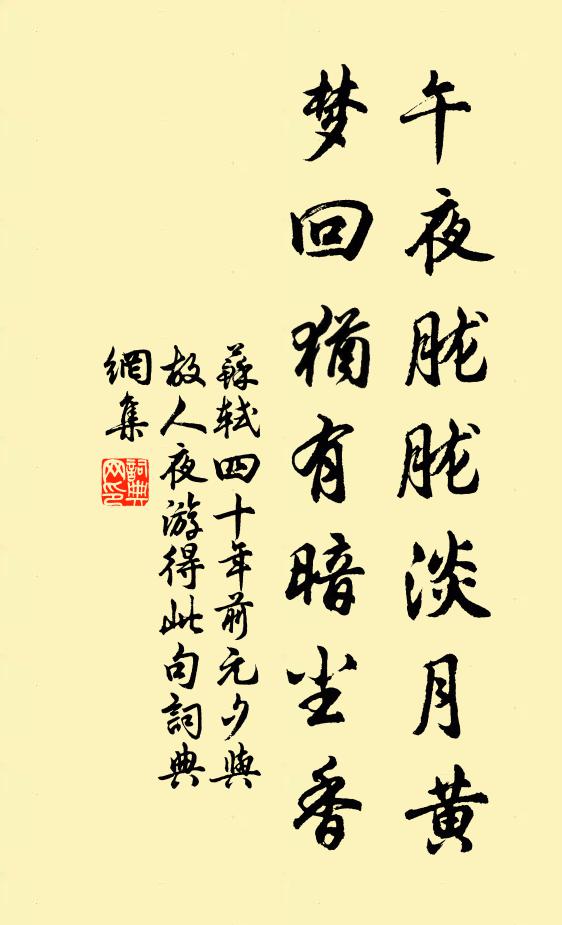 午夜胧胧淡月黄
梦回犹有暗尘香
蘇軾四十年前元夕與
故人夜游得此句詞典
網集
詞典
网印